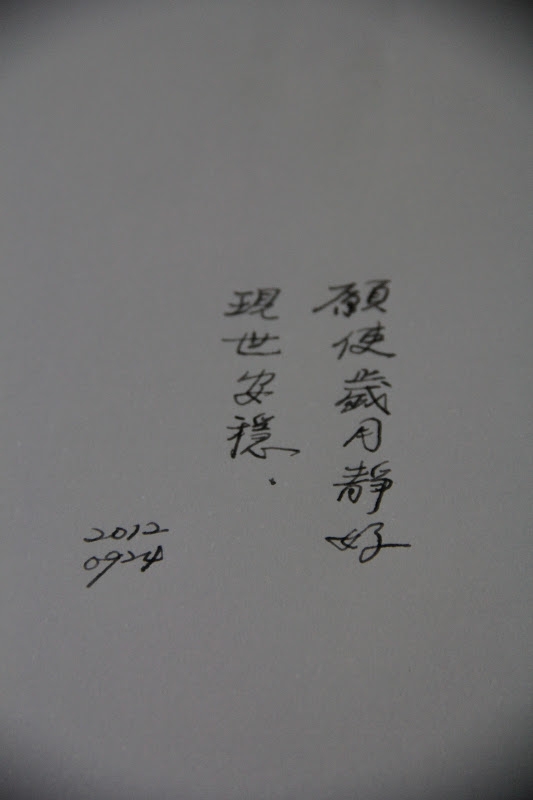 願使歲月靜好
現世安穩.
2012
0924